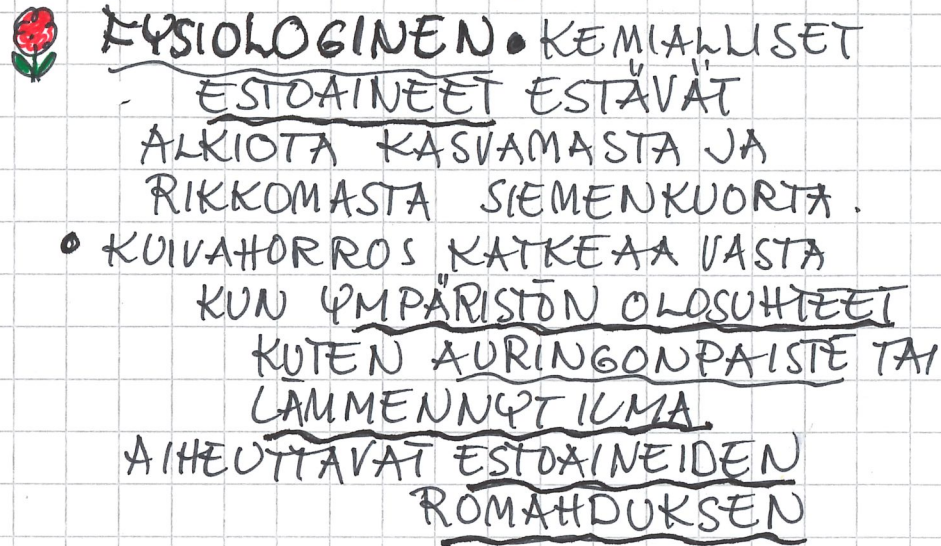 FYSIOLOGINEN • KEMIALLISET
ESTOAINEET ESTÄVÄT
ALKIOTA KASVAMASTA JA
RIKKOMASTA SIEMENKUORTA.
• KUIVAHORROS KATKEAA VASTA
KUN YMPÄRISTÖN OLOSUHTEET
KUTEN AURINGONPAISTE TAI
LÄMMENNYT ILMA
AIHEUTTAVAT ESTOAINEIDEN
ROMAHDUKSEN